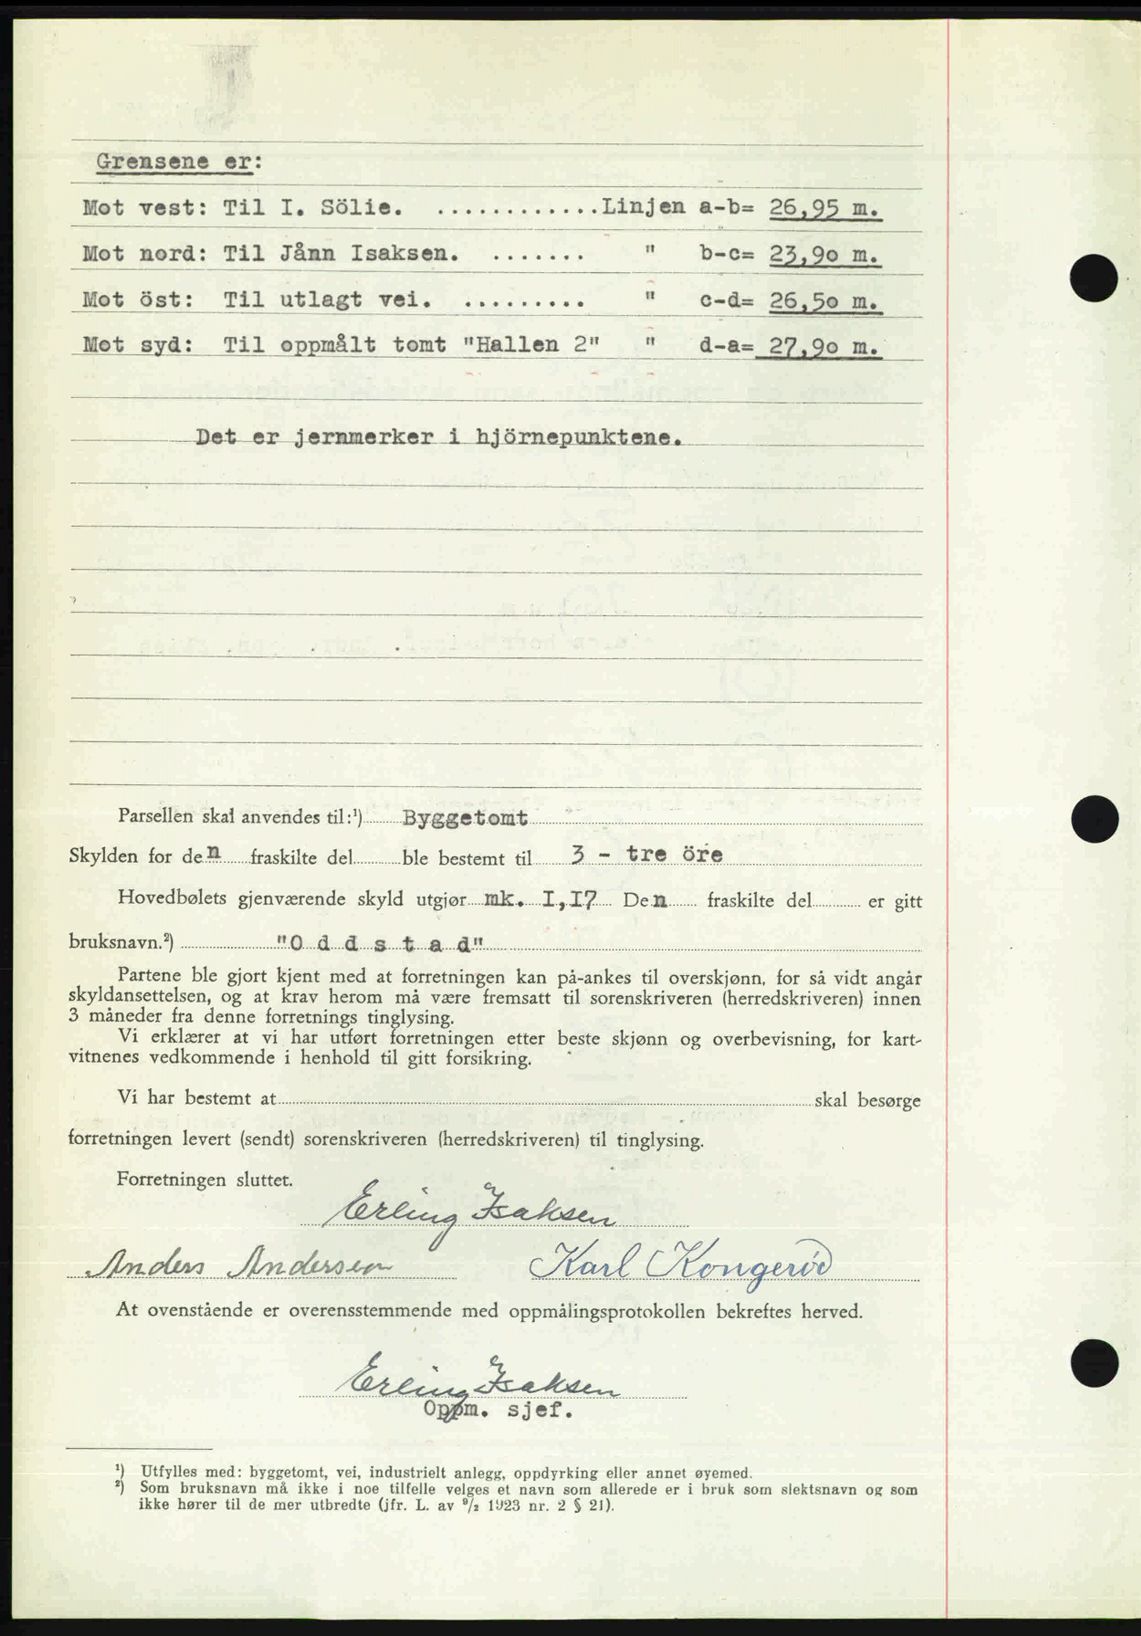 Grensene er:
Mot vest: Til I. Sölie. ............Linjen a-b= 26,95 m.
Mot nord: Til Jånn Isaksen. ....... " b-c= 23,90 m.
Mot öst: Til utlagt vei. ......... " c-d= 26,50 m.
Mot syd: Til oppmålt tomt "Hallen 2" " d-a= 27,90 m.
Det er jernmerker i hjörnepunktene.
Parsellen skal anvendes til:¹) Byggetomt
Skylden for den fraskilte del ble bestemt til 3 - tre öre
Hovedbølets gjenværende skyld utgjør mk. I,I7 Den fraskilte del er gitt
bruksnavn.²) "O d d s t a d"
Partene ble gjort kjent med at forretningen kan på-ankes til overskjønn, for så vidt angår
skyldansettelsen, og at krav herom må være fremsatt til sorenskriveren (herredskriveren) innen
3 måneder fra denne forretnings tinglysing.
Vi erklærer at vi har utført forretningen etter beste skjønn og overbevisning, for kart-
vitnenes vedkommende i henhold til gitt forsikring.
Vi har bestemt at skal besørge
forretningen levert (sendt) sorenskriveren (herredskriveren) til tinglysing.
Forretningen sluttet.
Erling Isaksen
Anders Andersen Karl Kongerød
At ovenstående er overensstemmende med oppmålingsprotokollen bekreftes herved.
Erling Isaksen
Oppm. sjef.
¹) Utfylles med: byggetomt, vei, industrielt anlegg, oppdyrking eller annet øyemed.
²) Som bruksnavn må ikke i noe tilfelle velges et navn som allerede er i bruk som slektsnavn og som
ikke hører til de mer utbredte (jfr. L. av ⁹/₂ 1923 nr. 2 § 21).